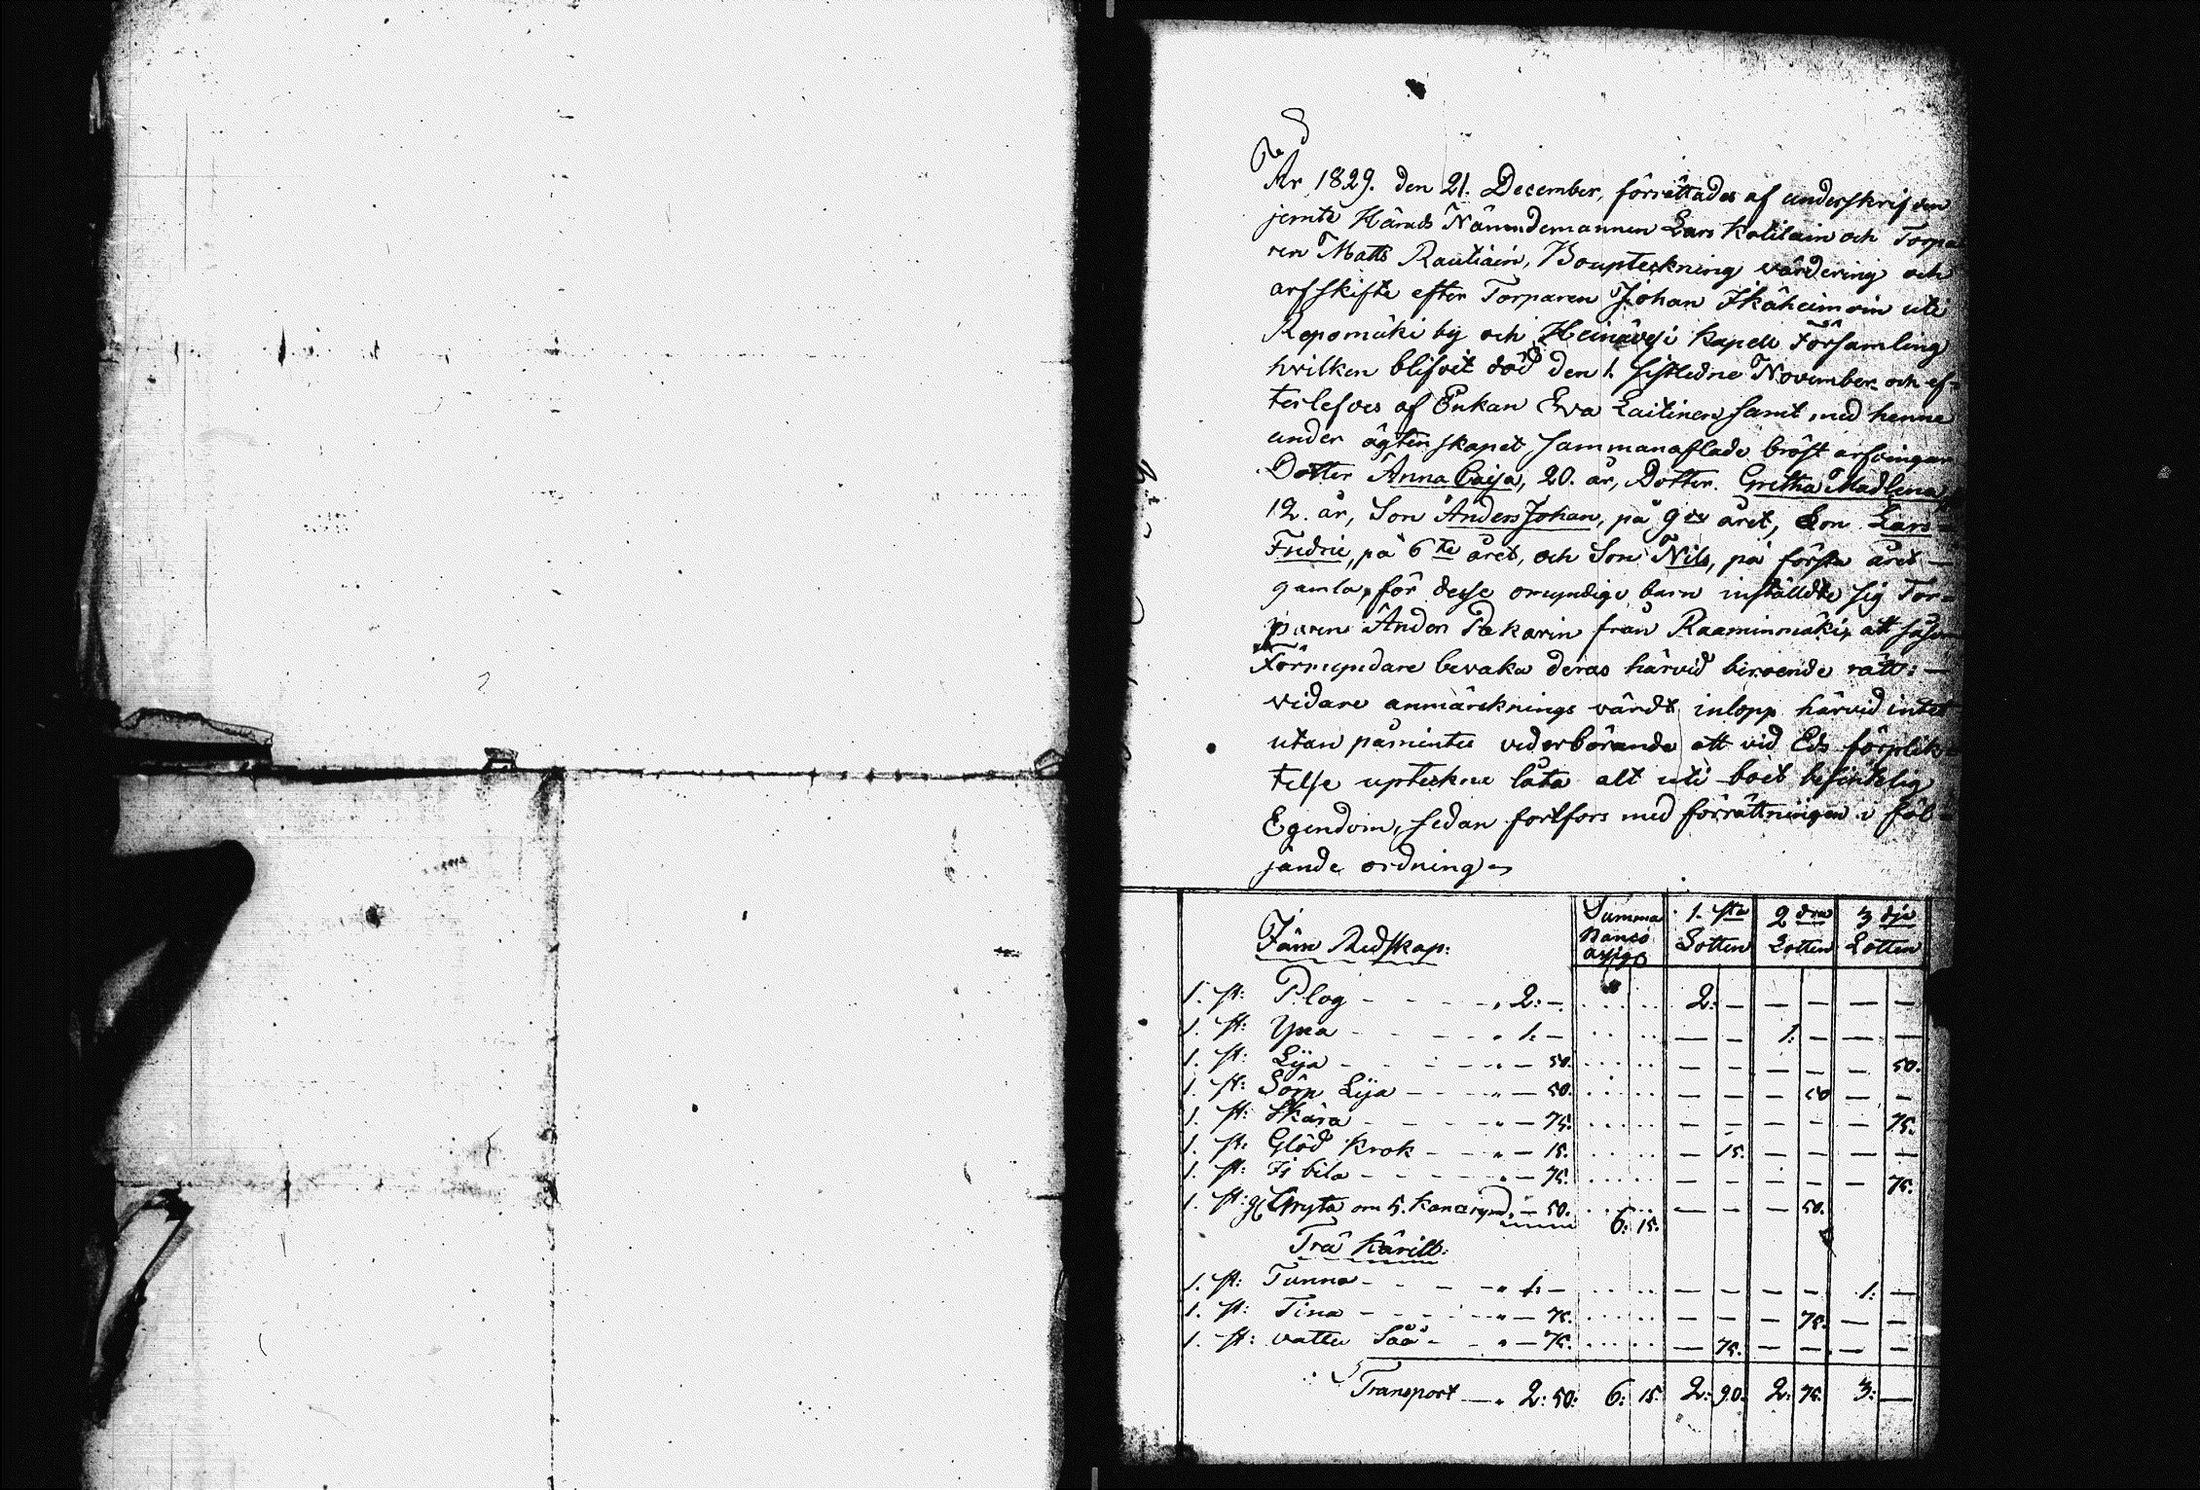 År 1829. den 21. December, förrättades af underskrifven
jemte Härads Nämndemannen Lars Kolilain och Torpa
ren Matts Rautiain, Bouptekning värdering och
arfskifte efter Torparen Johan Ikäheimoin uti
Repomäki by och Heinävesi Kapell Församling
hvilken blifvit död den 1. sistledne November och ef-
terlefves af Enkan Eva Laitinen samt med henne
under ägtenskapet sammanaflade bröst arfvingar
Dotter Anna Caisa, 20. år, Dotter Gretha Madlena,
12. år, Son Anders Johan, på 9de året, Son Lars
Fredric, på 6te året, och Son Nils, på första året —
gamla, för desse omyndige barn inställdte sig Tor-
paren Anders Pekarin från Raaminmäki, att såsom
Förmyndare bevaka deras härvid beroende rätt: —
vidare anmärknings värdt inlopp härvid intet
utan påmintes vederbörande att vid Eds förplik-
telse uptekna låta alt uti boet befintelig
Egendom, sedan fortfors med förrättningen i föl-
jande ordning
Järn Redskap: Summa Banco Assign 1.sta Lotten 2dra Lotten 3dje Lotten
1. st: Plog - - - " 2: — 2: — — — — —
1. st: Yxa - - - " 1: — — — 1: — — —
1. st: Lija - - - " — 50. — — — — — 50.
1. st: Sörp Lija - - - " — 50. — — — 50 — —
1. st: Skära - - - " — 75. — — — — — 75.
1. st: Glöd Krok - - - " — 15. — 15. — — — —
1. st: Is bila - - - " — 75. — — — — — 75.
1. st: Gryta om 5. Kanorymd " — 50. 6: 15. — — — 50.
Trä Kärill:
1. st: Tunna - - - " 1: — — — — — 1: —
1. st: Tina - - - " — 75. — — — 75. — —
1. st: vatten Såå - - " — 75. — 75. — — — —
Transport — " 2: 50: 6: 15. 2: 90. 2: 75. 3: —